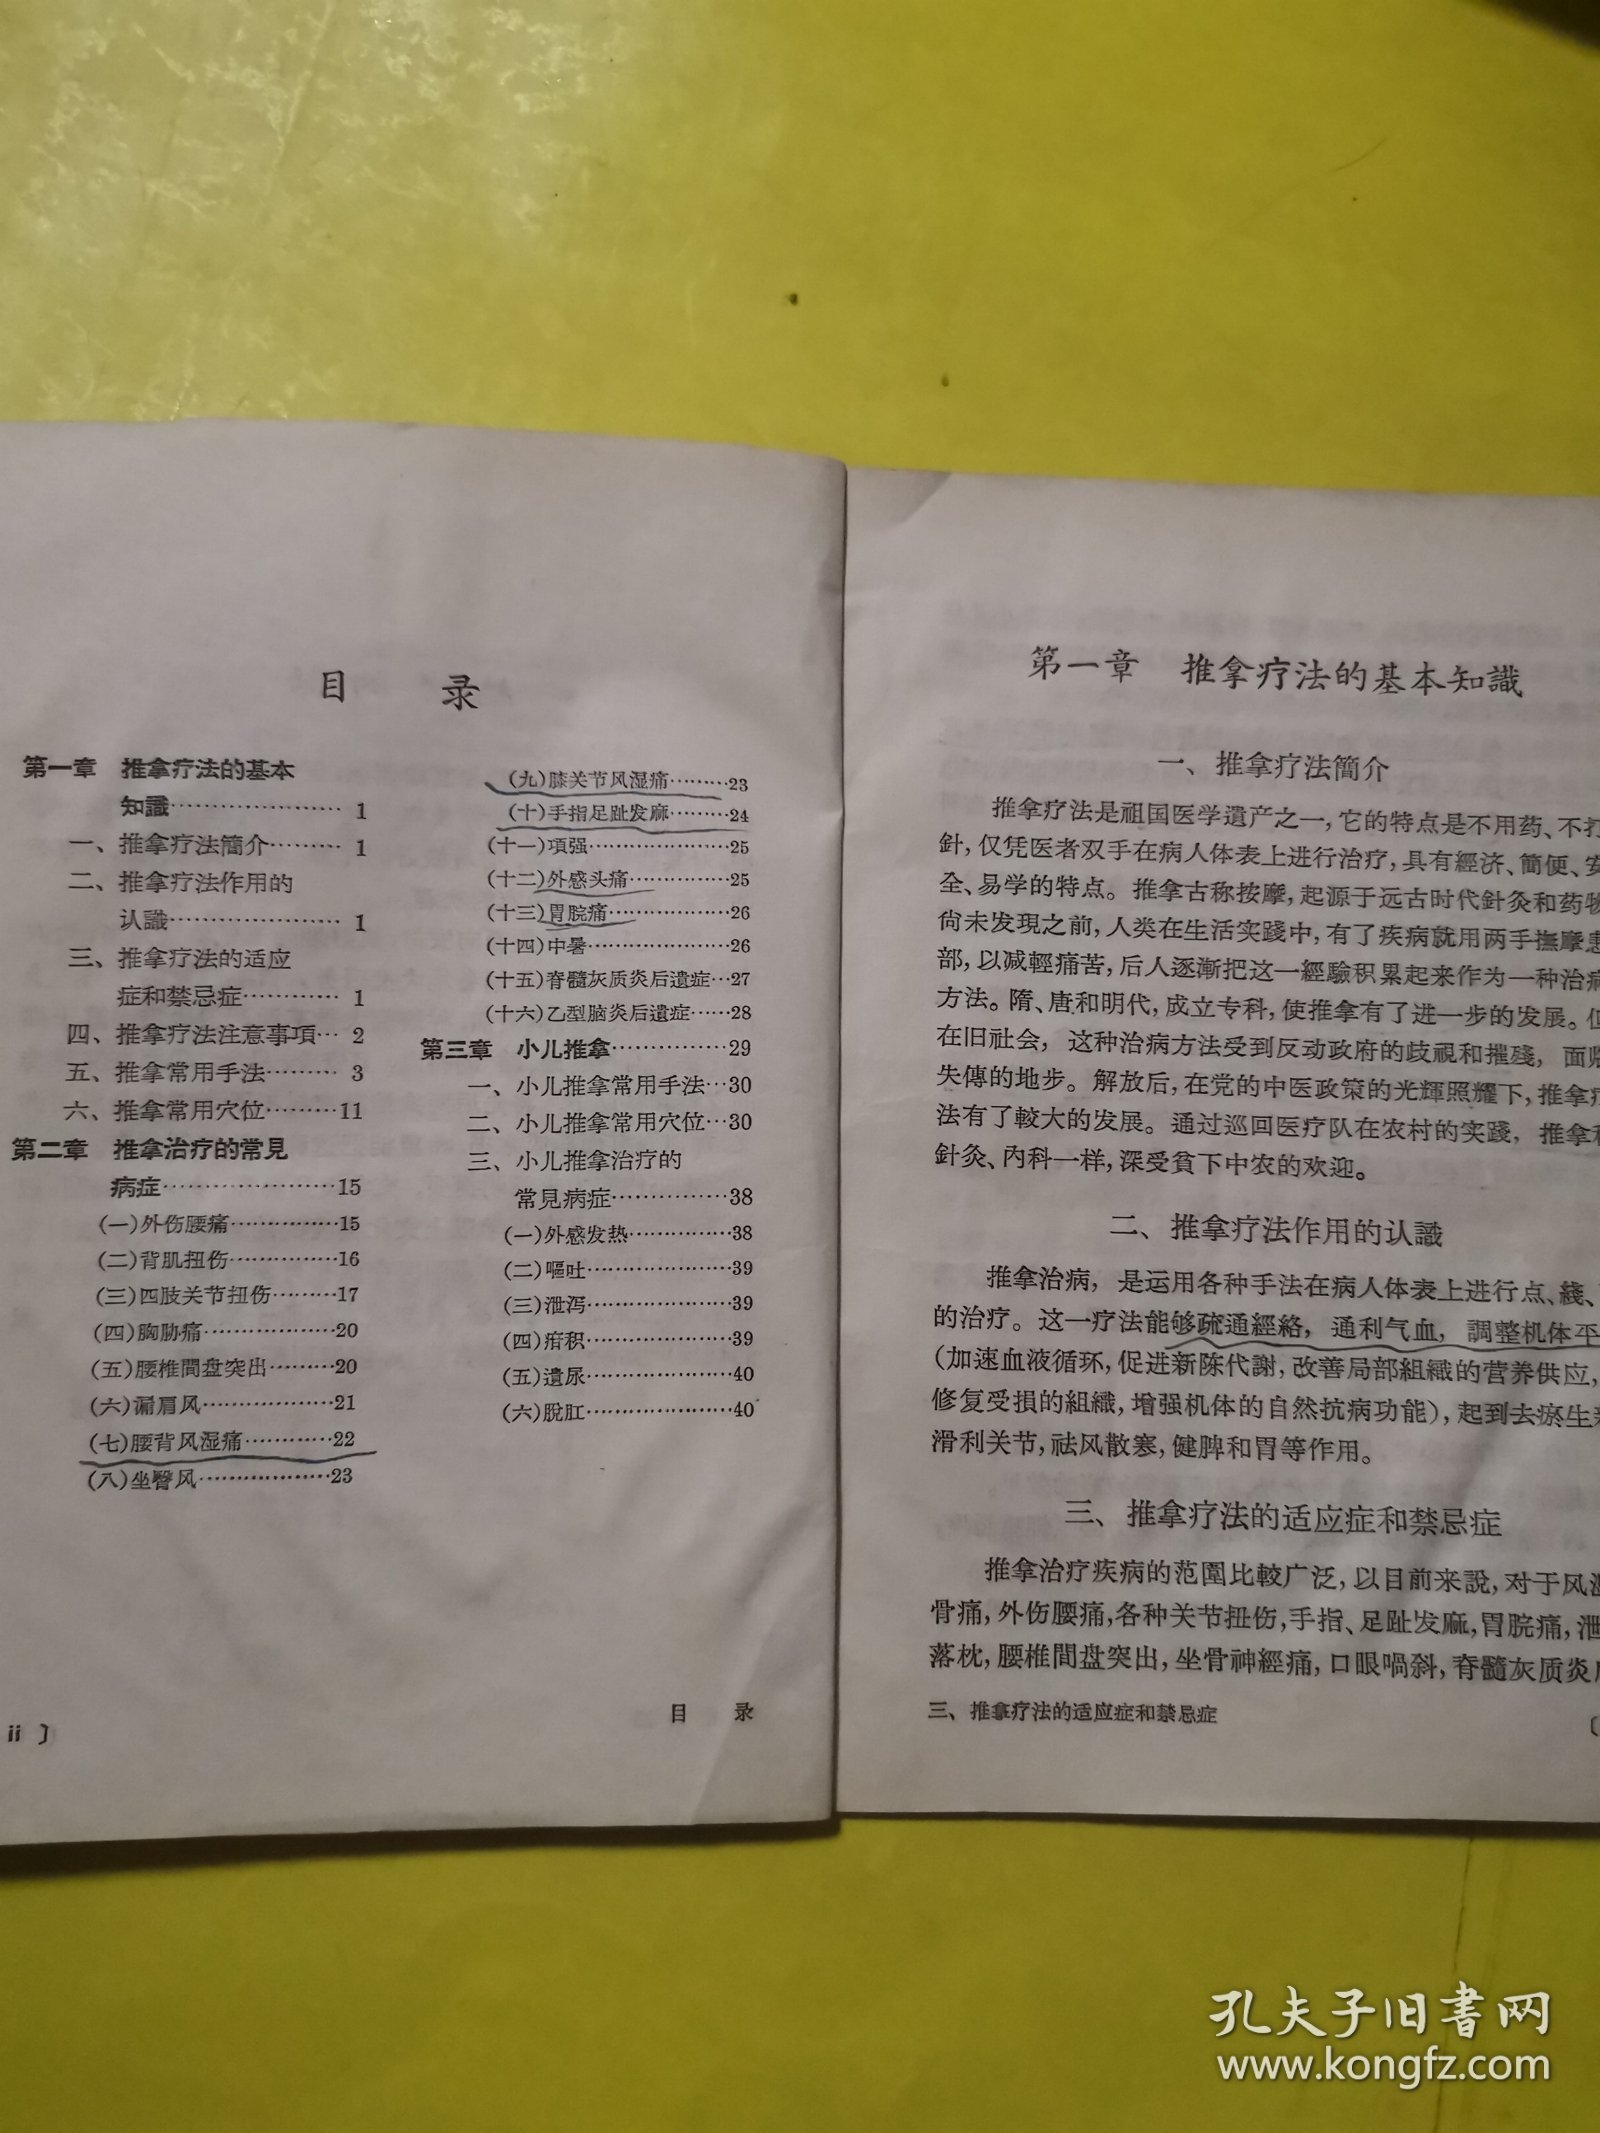 目 录
第一章 推拿疗法的基本
知識…………………… 1
一、推拿疗法簡介……… 1
二、推拿疗法作用的
认識…………………… 1
三、推拿疗法的适应
症和禁忌症………… 1
四、推拿疗法注意事項… 2
五、推拿常用手法……… 3
六、推拿常用穴位………11
第二章 推拿治疗的常見
病症…………………15
(一)外伤腰痛……………15
(二)背肌扭伤……………16
(三)四肢关节扭伤………17
(四)胸胁痛………………20
(五)腰椎間盘突出………20
(六)漏肩风………………21
(七)腰背风湿痛…………22
(八)坐臀风………………23
(九)膝关节风湿痛………23
(十)手指足趾发麻………24
(十一)項强………………25
(十二)外感头痛…………25
(十三)胃脘痛……………26
(十四)中暑………………26
(十五)脊髓灰质炎后遺症…27
(十六)乙型脑炎后遺症……28
第三章 小儿推拿……………29
一、小儿推拿常用手法…30
二、小儿推拿常用穴位…30
三、小儿推拿治疗的
常見病症……………38
(一)外感发热……………38
(二)嘔吐…………………39
(三)泄泻…………………39
(四)疳积…………………39
(五)遺尿…………………40
(六)脫肛…………………40
ii 〕
目 录
第一章 推拿疗法的基本知識
一、推拿疗法簡介
推拿疗法是祖国医学遺产之一,它的特点是不用药、不打
針,仅凭医者双手在病人体表上进行治疗,具有經济、簡便、安
全、易学的特点。推拿古称按摩,起源于远古时代針灸和药物
尚未发現之前,人类在生活实踐中,有了疾病就用两手撫摩患
部,以减輕痛苦,后人逐漸把这一經驗积累起来作为一种治病
方法。隋、唐和明代,成立专科,使推拿有了进一步的发展。但
在旧社会,这种治病方法受到反动政府的歧視和摧殘,面临
失傳的地步。解放后,在党的中医政策的光輝照耀下,推拿疗
法有了較大的发展。通过巡回医疗队在农村的实踐,推拿和
針灸、內科一样,深受貧下中农的欢迎。
二、推拿疗法作用的认識
推拿治病,是运用各种手法在病人体表上进行点、綫、
的治疗。这一疗法能够疏通經絡,通利气血,調整机体平
(加速血液循环,促进新陈代謝,改善局部組織的营养供应,
修复受損的組織,增强机体的自然抗病功能),起到去瘀生新
滑利关节,祛风散寒,健脾和胃等作用。
三、推拿疗法的适应症和禁忌症
推拿治疗疾病的范圍比較广泛,以目前来說,对于风湿
骨痛,外伤腰痛,各种关节扭伤,手指、足趾发麻,胃脘痛,泄
落枕,腰椎間盘突出,坐骨神經痛,口眼喎斜,脊髓灰质炎后
三、推拿疗法的适应症和禁忌症
〔
孔夫子旧書网
www.kongfz.com